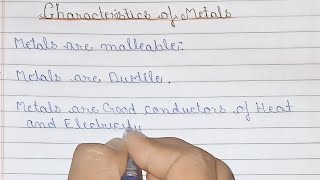 Characteristics of Metals
Metals are malleable:
Metals are Dustile.
Metals are Good conductors of Heat
and Electricity